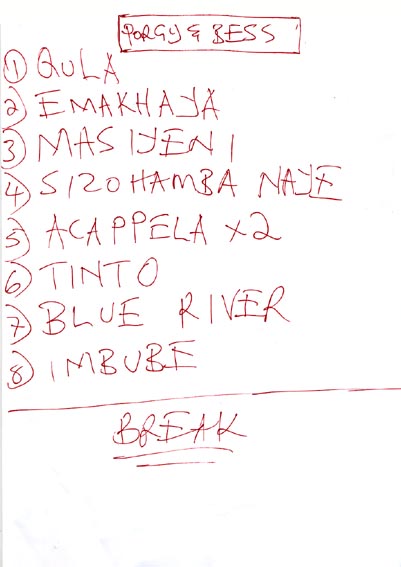 PORGY & BESS
1 QULA
2 EMAKHAYA
3 MASIYENI
4 SIZOHAMBA NAYE
5 ACAPPELA x2
6 TINTO
7 BLUE RIVER
8 IMBUBE
BREAK